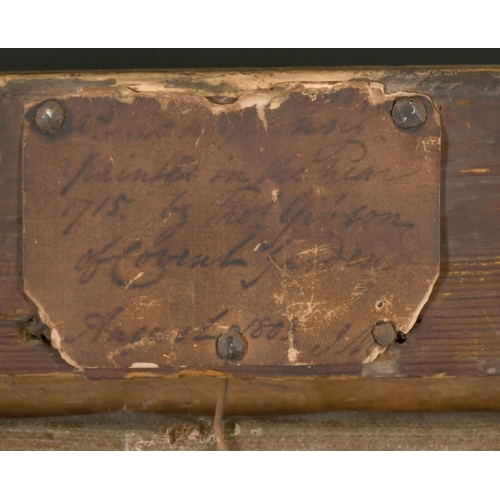 painted in the Year
1715. by Thos Gibson
of Covent Garden
August 180